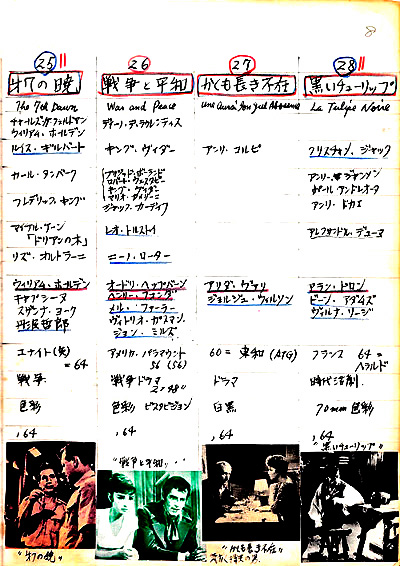 8
25 ||
才7の暁
The 7th Dawn
チャールズ・K・フェルドマン
ウィリアム・ホールデン
ルイス・ギルバート
カール・タンバーグ
フレデリック・キング
マイケル・ケーン
「ドリアンの木」
リズ・オルトラーニ
ウィリアム・ホールデン
キャプシーヌ
スザンナ・ヨーク
丹波哲郎
ユナイト(英)
=64
戦争
色彩
,64
"才7の暁"
26
戦争と平和
War and Peace
ディーノ・デ・ラウレンティス
キング・ヴィダー
ブリジット・ボーランド
ロバート・ウェスタビー
キング・ヴィダー
マリオ・
ジャック・カーディフ
レオ・トルストイ
ニーノ・ローター
オードリ・ヘップバーン
ヘンリー・フォンダ
メル・ファーラー
ヴィトリオ・ガスマン
ジョン・ミルズ
アメリカ パラマウント
56 (56)
戦争ドラマ
2×48"
色彩 ビスタビジョン
,64
"戦争と平和"
27
かくも長き不在
Une aussi longue Absence
アンリ・コルピ
アリダ・ヴァリ
ジョルジュ・ウィルソン
60= 東和 (ATG)
ドラマ
白黒
,64
"かくも長き不在"
28 ||
黒いチューリップ
La Tulipe Noire
クリスチャン・ジャック
アンリ・ジャンソン
ポール アンドレオータ
アンリ・ドカエ
アレクサンドル・デューマ
アラン・ドロン
ビーナ・アダムズ
ヴィルナ・リージ
フランス 64=
ヘラルド
時代活劇
70mm 色彩
,64
"黒いチューリップ"